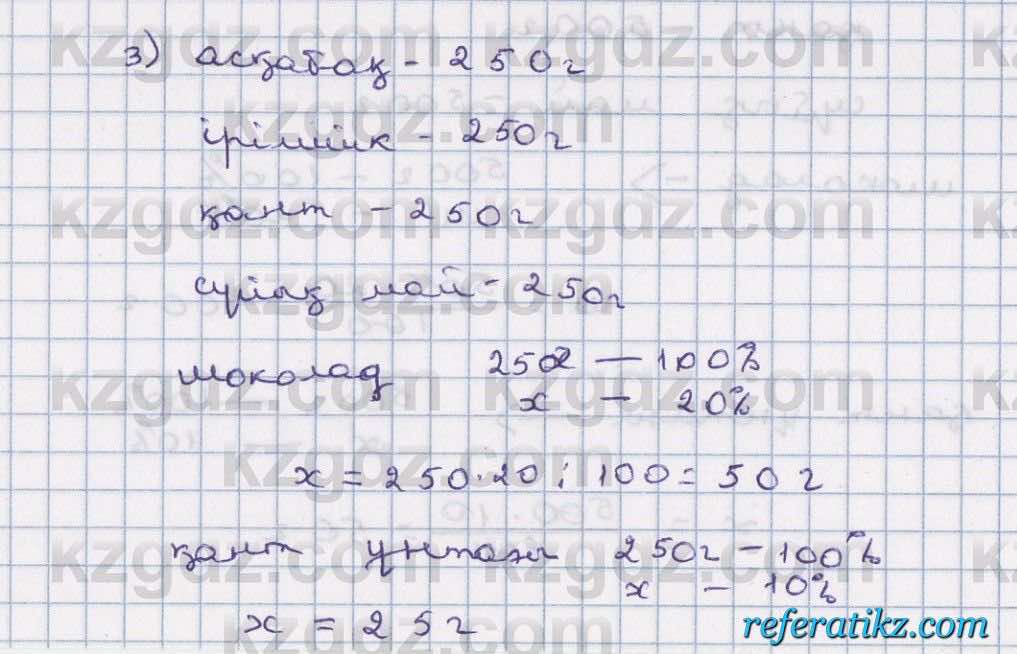 3) асқабақ - 250 г
ірімшік - 250 г
қант - 250 г
сұйық май - 250 г
шоколад 250г — 100%
х — 20%
х = 250·20 : 100 = 50 г
қант ұнтағы 250г - 100%
х - 10%
х = 25 г
kzgdz.com
referatikz.com